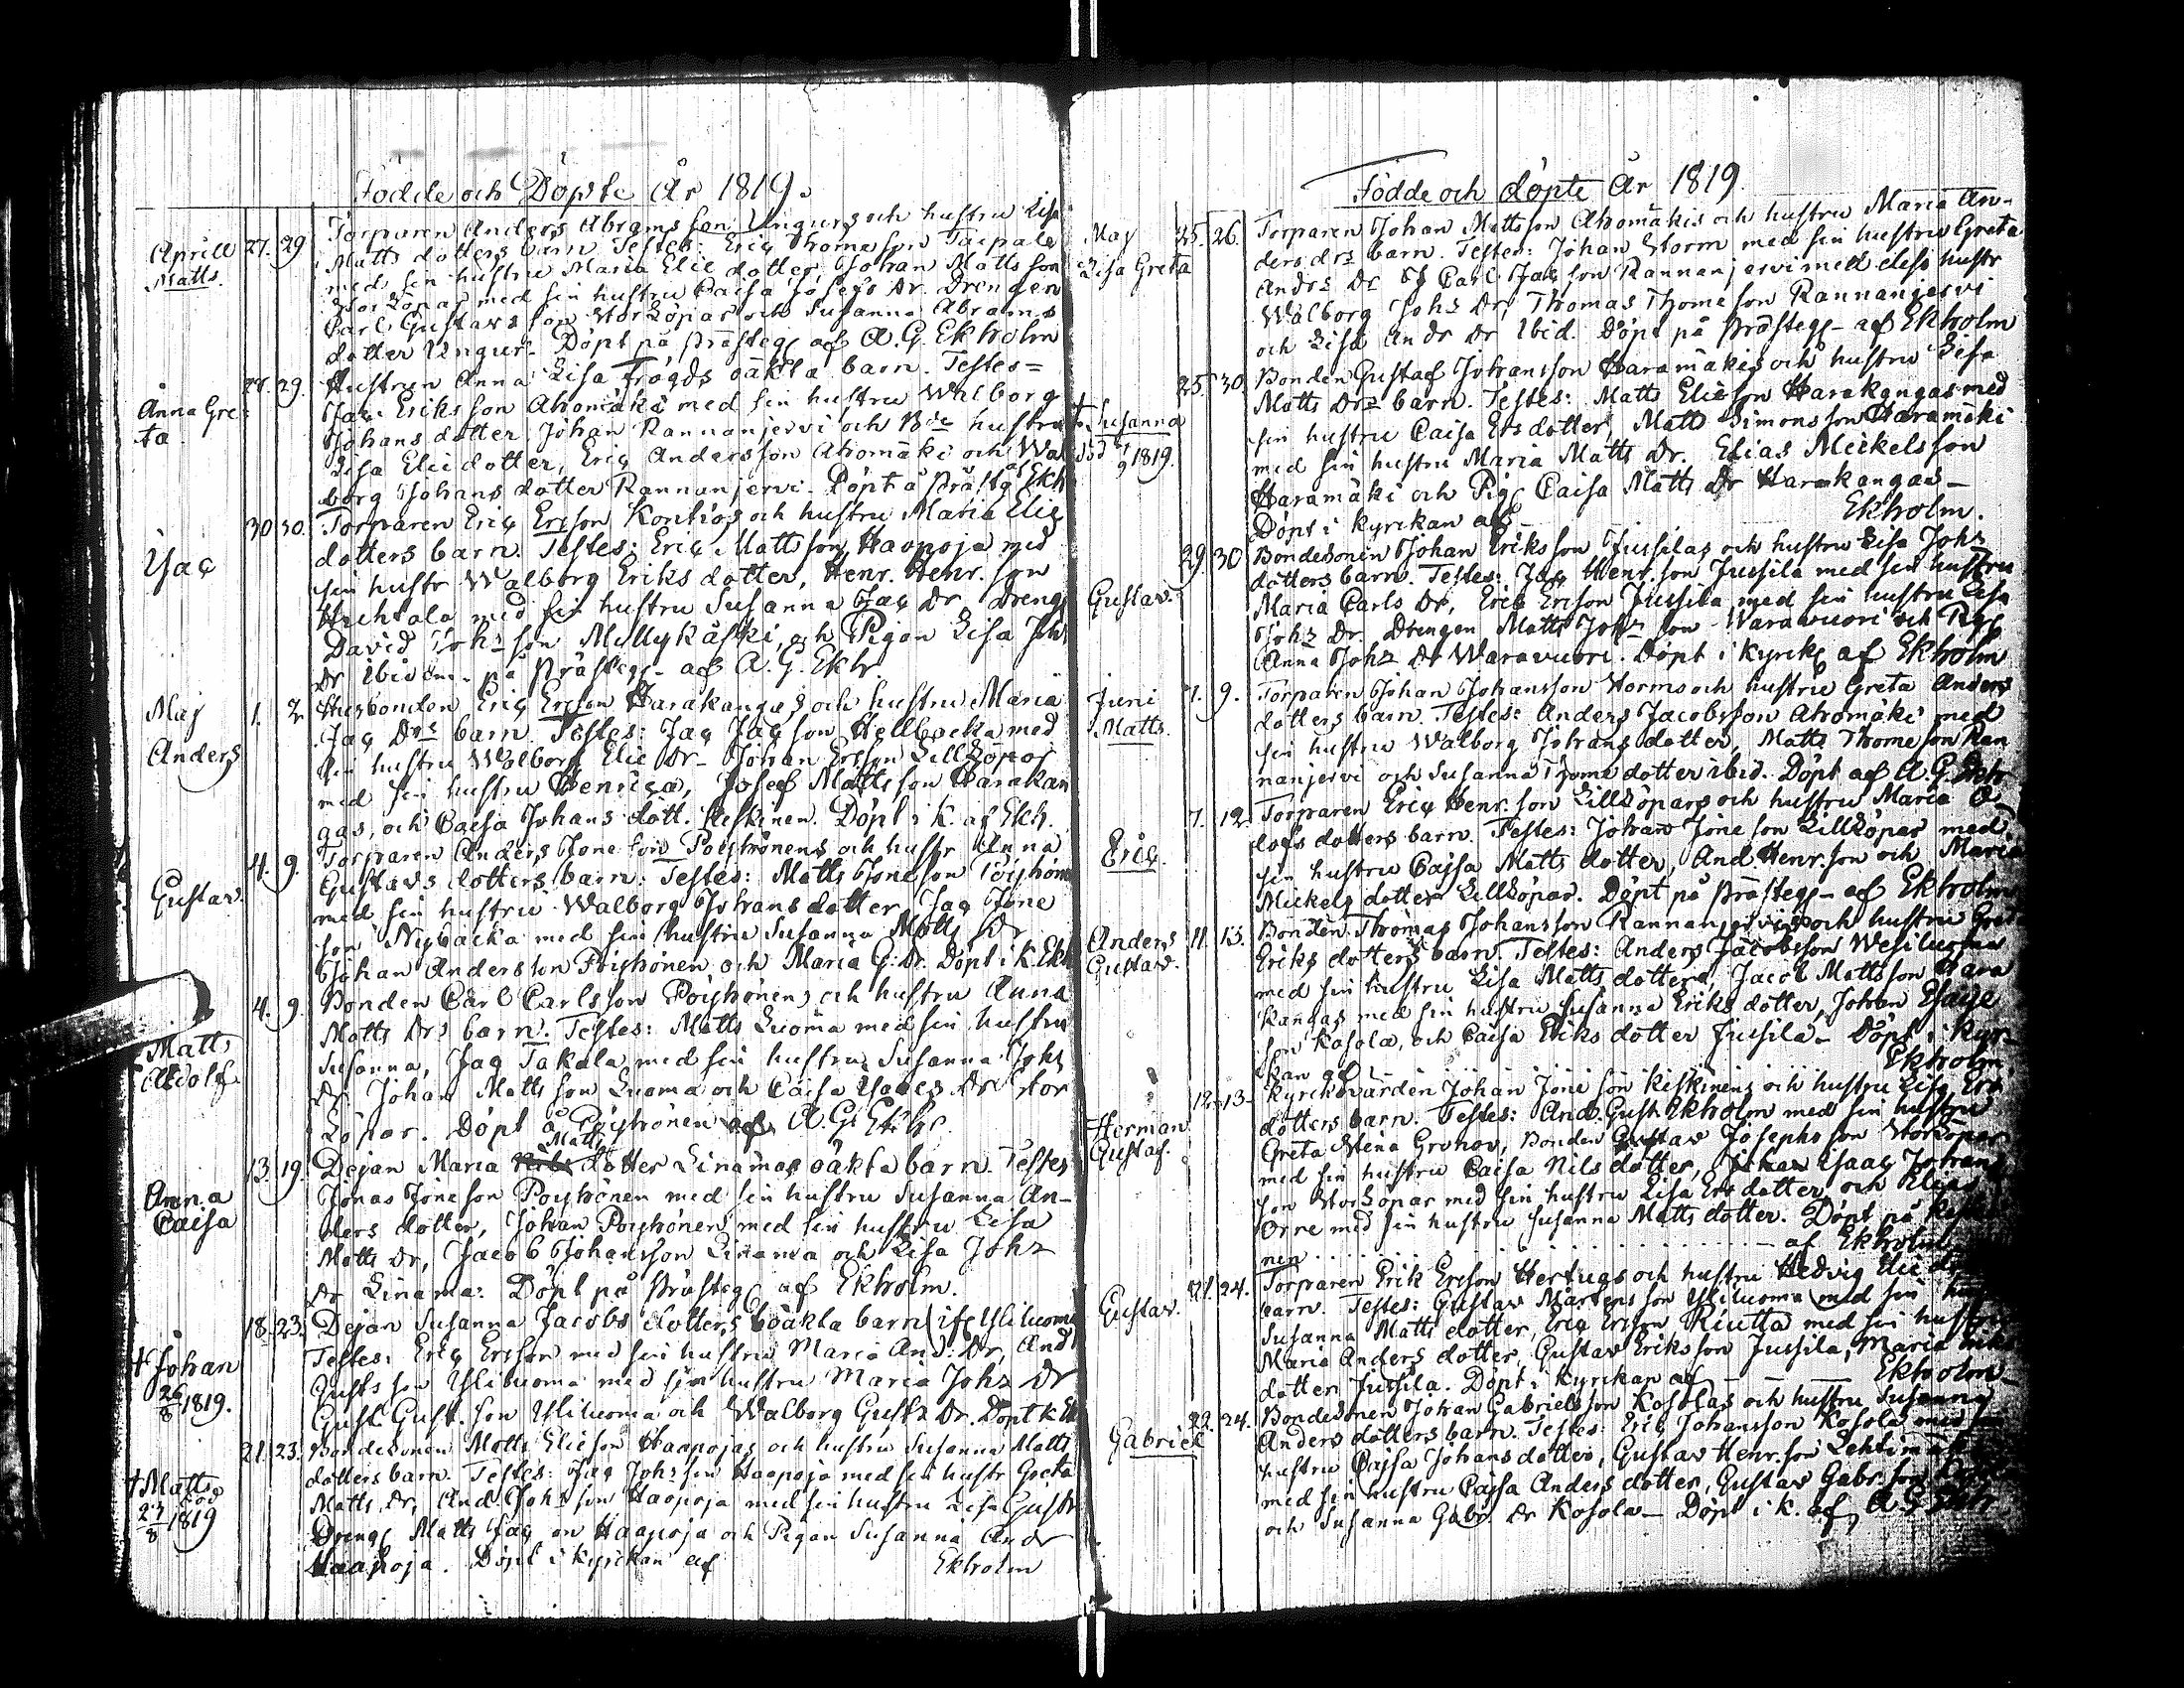 Födde och Döpte År 1819.
Aprill 27. 29 Torparen Anders Abramsson Ungurs och hustru Lisa
Matts Matts dotters barn Testes: Eriç Thomasson Taipale
med sin hustru Maria Elie dotter, Johan Mattsson
Storköpar med sin hustru Caisa Josefs Dr. Drengen
Carl Gustavsson Storköpar och Susanna Abrams
dotter Ungur. Döpt på prästeg af A. G. Ekholm
Anna Gre= 28. 29. Hustrun Anna Lisa Frögds oäkta barn. Testes=
ta Jaç Eriksson Ahomäki med sin hustru Walborg
Johans dotter, Johan Rannanjervi och hustru
Lisa Elie dotter, Eriç Andersson Ahomäki och Wal
borg Johans dotter Rannanjervi. Döpt å prästg af Ekh
Ysaç 30 30. Torparen Eriç Ersson Kontios och hustru Maria Elie
dotters barn. Testes: Eriç Mattsson Haapoja med
sin hustr Walborg Eriks dotter, Henr. Henr. son
Huhtala med sin hustru Susanna Jaç Dr, Dreng
David Johs son Myllykäski, och Pigan Lisa Joh
Dr ibidem. på prästeg- af A. G. Ekh.
Maj 1. 2 Husbonden Eriç Ersson Harakangas och hustru Maria
Anders Jaç Drs barn. Testes: Jaç Jaç son Hellbacka med
sin hustru Walborg Elie Dr- Johan Ersson Lillköpar
med sin hustru Henriça, Josef Mattsson Harakan
gas, och Caisa Johans dott. Keskinen. Döpt i K. af Ekh.
Gustav 4. 9. Torparen Anders Jone son Pöyhönens och hustr Anna
Gustavs dotters barn. Testes: Matts Jone son Pöyhönen
med sin hustru Walborg Johans dotter, Jaç Jone
son Nybacka med sin hustru Susanna Matts Dr
Johan Andersson Pöyhönen och Maria G: Dr. Döpt i K. Ekh
Matts 4. 9. Bonden Carl Carlsson Pöyhönens och hustru Anna
Adolf Matts Drs barn. Testes: Matts Luoma med sin hustru
Susanna, Jaç Takala med sin hustru Susanna Johs
Dr. Johan Matts son Luoma och Caisa Ysaks Dr Stor
köpar. Döpt å Pöyhönen af A. G. Ekh.
Matts
Anna 13. 19. Dejan Maria dotter Linamas oäkta barn. Testes
Caisa Jonas Jone son Pöyhönen med sin hustru Susanna An-
ders dotter, Johan Pöyhönen med sin hustru Lisa
Matts Dr, Jacob Johansson Linama och Lisa Johs
Dr Linama: Döpt på Prästeg af Ekholm.
+ Johan 18. 23. Dejan Susanna Jacobs dotters oäkta barn ifr Yliluoma
26/8 1819. Testes: Eriç Ersson med sin hustru Maria And. Dr, And
Gusts son Yliluoma med sin hustru Maria Johs Dr
Gust. Gust. son Yliluoma och Walborg Gusts Dr. Döpt K. Ek
+ Matts 21. 23. Bondesonen Matts Elieson Haapojas och hustru Susanna Matts
död dotters barn. Testes: Jaç Johs son Haapoja med sin hustr Greta
27/8 1819 Matts Dr, And. Johs son Haapoja med sin hustru Lisa Gusts
Dreng Matts Jaç son Haapoja och Pigan Susanna And Dr
Haapoja. Döpt i kyrckan af Ekholm
Födde och döpte År 1819
May 25. 26. Torparen Johan Mattsson Ahomäkis och hustru Maria An-
Lisa Greta ders drs barn. Testes: Johan Storm med sin hustru Greta
Andrs Dr Carl Jaç son Rannanjervi med dess hustr
Walborg Johs Dr, Thomas Thome son Rannanjervi
och Lisa Andr Dr Ibid. Döpt på prästeg- af Ekholm
+ Susanna 25. 30. Bonden Gustaf Johansson Haramäkis och hustru Lisa
Död 1819. Matts Drs barn. Testes: Matts Elieson Harakangas med
sin hustru Caisa Ers dotter, Matts Simonsson Haramäki
med sin hustru Maria Matts Dr. Elias Mickelsson
Haramäki och Pig Caisa Matts Dr Harakangas-
Döpt i kyrckan af Ekholm.
Gustav. 29. 30 Bondesonen Johan Eriksson Jussilas och hustru Lisa Johs
dotters barn. Testes: Jaç Henr. son Jussila med sin hustru
Maria Carls Dr, Eric Ersson Jussila med sin hustru Lisa
Johs Dr. Drengen Matts Johs son Waravuori och Pig
Anna Johs Dr Waravuori. Döpt i Kyrck af Ekholm
Juni 7. 9. Torparen Johan Johansson Storms och hustru Greta Anders
Matts dotters barn. Testes: Anders Jacobsson Ahomäki med
sin hustru Walborg Johans dotter, Matts Thomeson Ran
nanjervi och Susanna Thome dotter ibid. Döpt af A. G. Ekh
Eriç. 7. 12. Torparen Eriç Henr. son Lillköpars och hustru Maria A
dolfs dotters barn. Testes: Johan Jone son Lillköpar med
sin hustru Cajsa Matts dotter, And Henr. son och Maria
Mickels dotter Lillköpar. Döpt på prästeg- af Ekholm
Anders 11. 13. Bonden Thomas Johansson Rannanjervis och hustru Greta
Gustav. Eriks dotters barn. Testes: Anders Jacobsson Wesiluoma
med sin hustru Lisa Matts dotter, Jacob Mattsson Hara
kangas med sin hustru Susanna Eriks dotter, Johan Esaije
son Kosola, och Caisa Eriks dotter Jussila- Döpt i kyr-
kan af Ekholm
Herman 12. 13. Kyrckovärden Johan Jone son Keskinens och hustru Lisa Ers
Gustaf. dotters barn. Testes: And. Gust. Ekholm med sin hustru
Greta Stena Gronov, Bonden Gustav Josephsson Storköpar
med sin hustru Caisa Nils dotter, Ysaaç Johans
son Storköpar med sin hustru Lisa Ers dotter, och Elias
Orne med sin hustru Susanna Matts dotter. Döpt på Keski
nen af Ekholm
Gustav. 21. 24. Torparen Erik Ersson Hertugs och hustru Hedvig Elie
barn. Testes: Gustav Mårtens son Yliluoma med sin
Susanna Matts dotter, Eriç Ersson Riutta med sin hustru
Maria Anders dotter, Gustav Eriksson Jussila, Maria
dotter Jussila. Döpt i kyrckan af Ekholm-
Gabriel 22. 24. Bondesonen Johan Gabrielsson Kosolas och hustru Susanna
Anders dotters barn. Testes: Eriç Johansson Kosola med
hustru Cajsa Johans dotter, Gustav Henr. son Lehtimäki
med sin hustru Cajsa Anders dotter, Gustav Gabr. son
och Susanna Gabr. Dr Kosola- Döpt i K. af A. G. Ekh